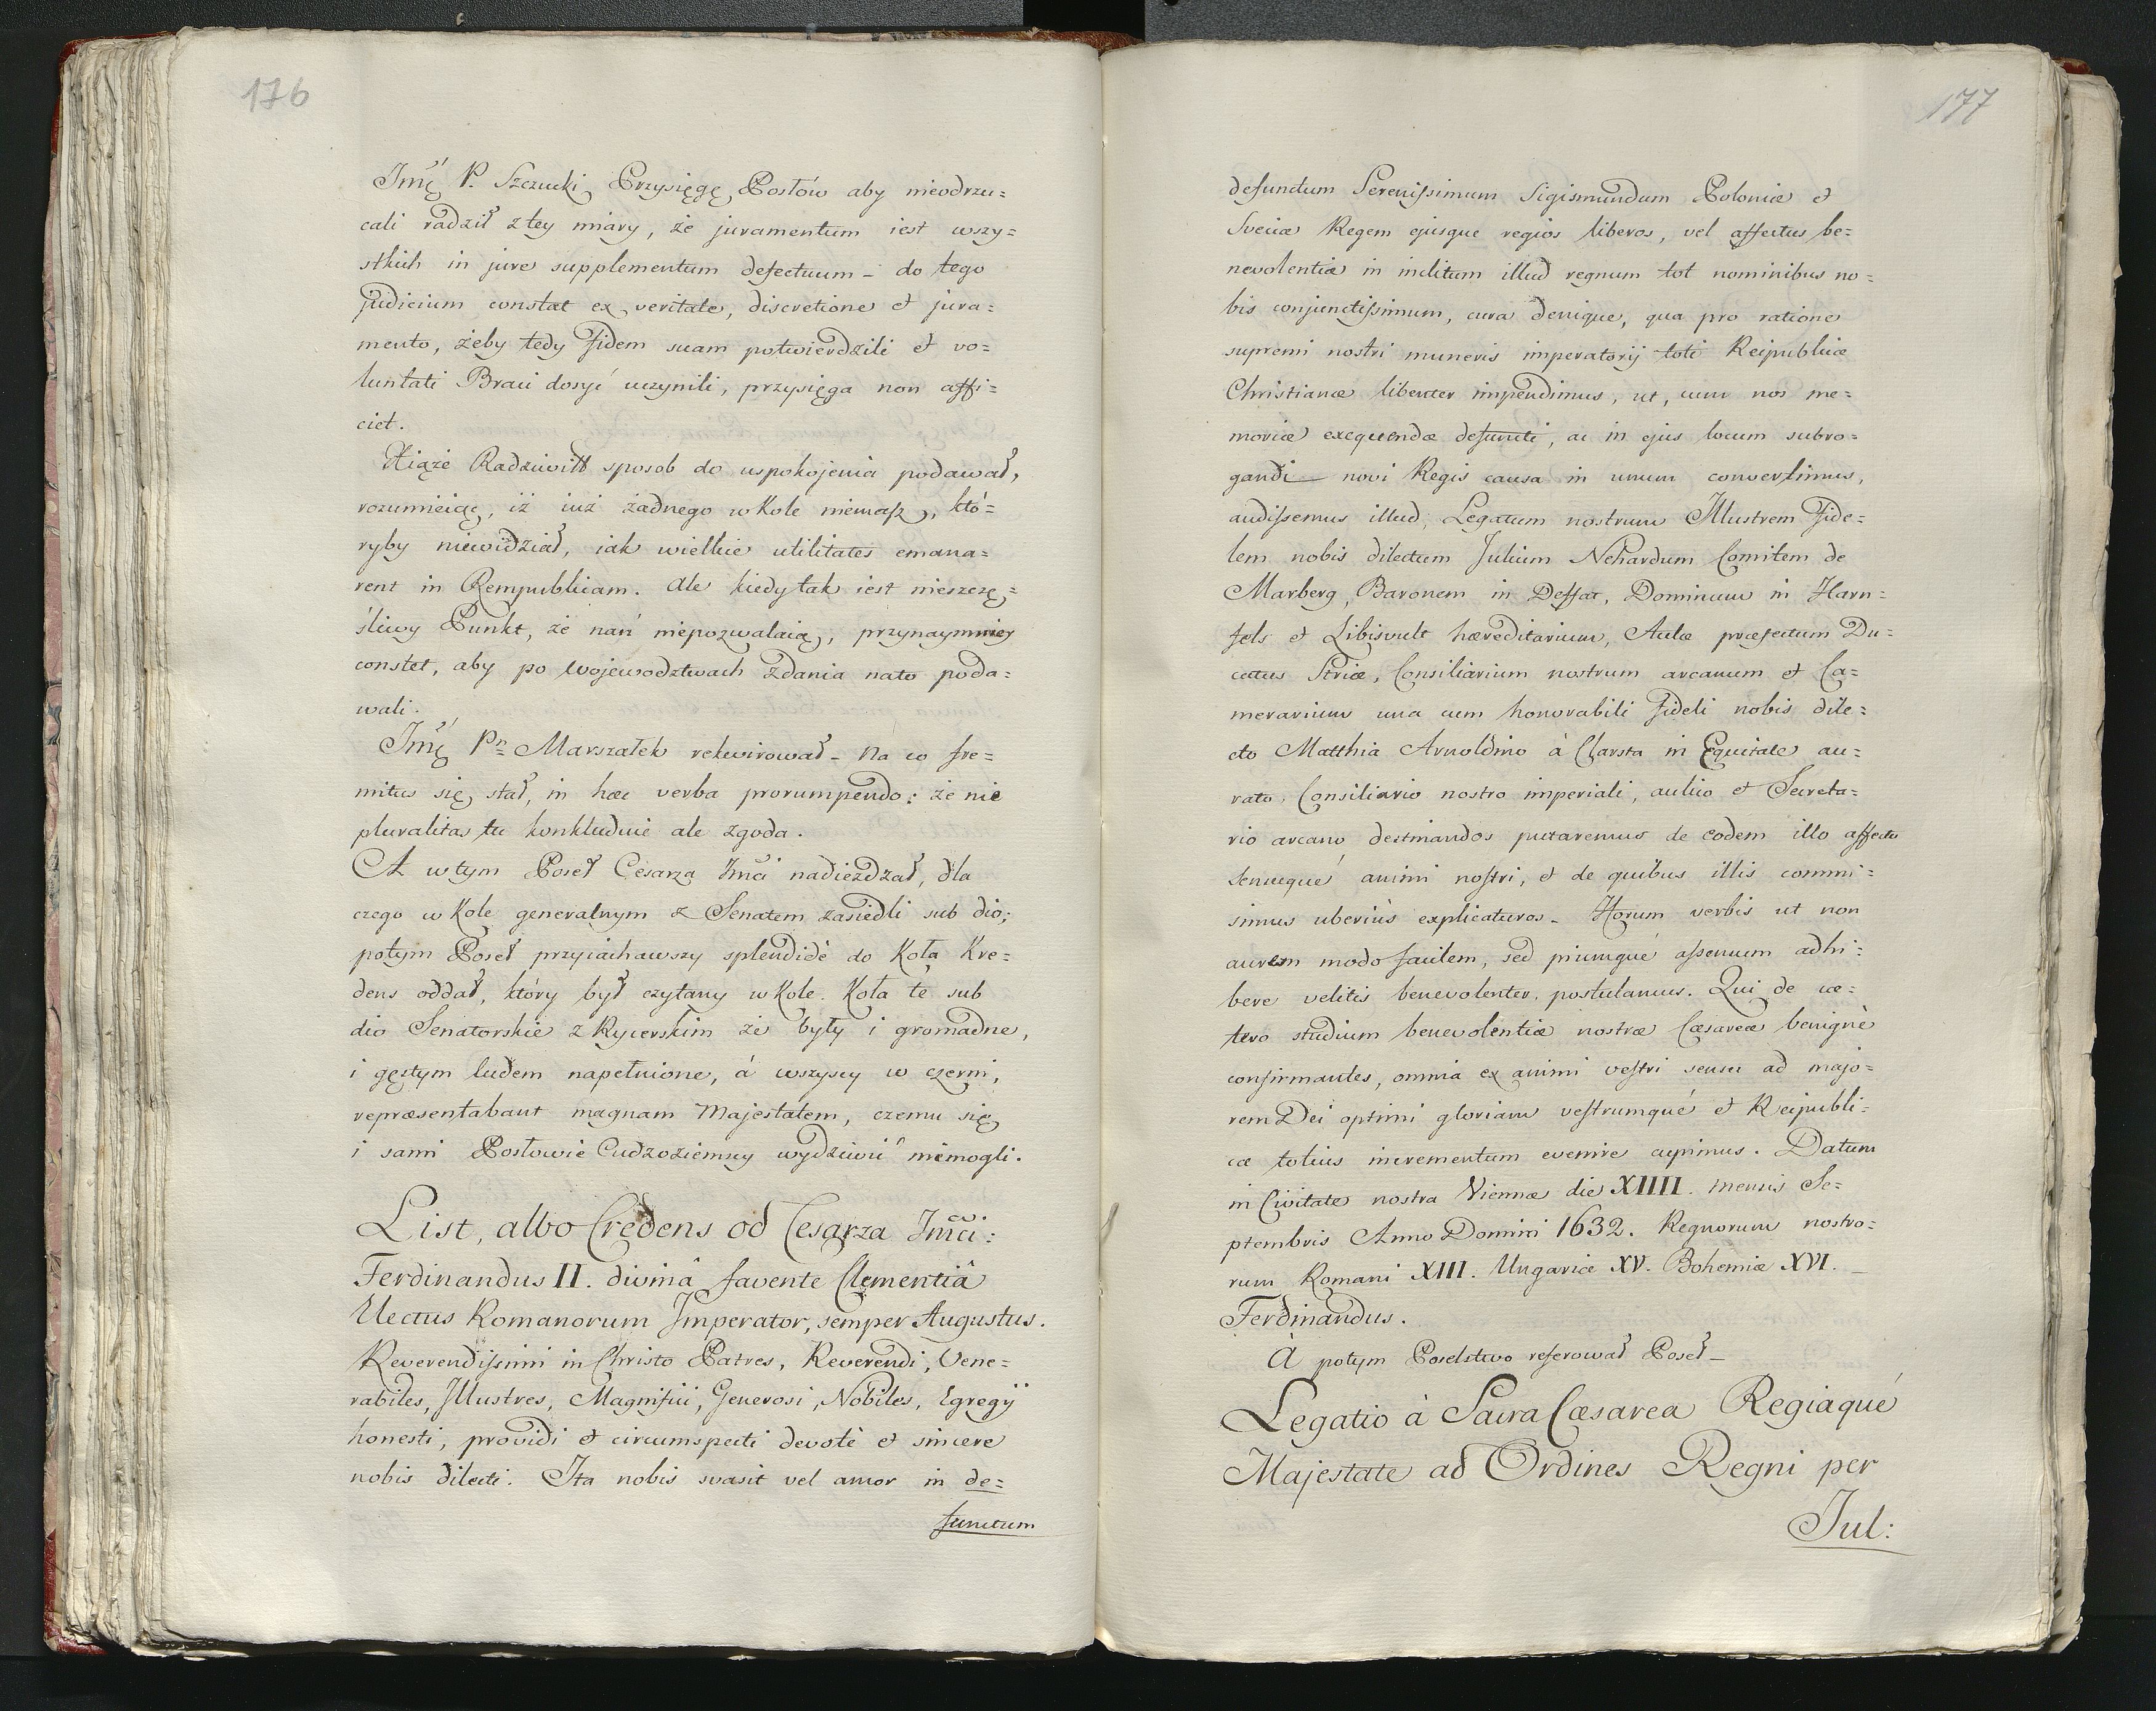 176
Jmć P. Szczucki Przysięgę Posłów aby nieodrzu=
cali radził z tey miary, że juramentum iest wszy=
stkich in jure supplementum defectuum – do tego
judicium constat ex veritate, discretione et jura=
mento, żeby tedy fidem suam potwierdzili et vo=
luntati Braci dosyć uczynili, przysięga non affi=
ciet.
Xiąże Radziwiłł sposob do uspokojenia podawał,
rozumieiąc, iż iuż żadnego w Kole niemasz, któ=
ryby niewidział, iak wielkie utilitates emana=
rent in Rempublicam. Ale kiedy tak iest nieszczę=
śliwy Punkt, że nań niepozwalaią, przynaymniey
constet, aby po Wojewodztwach zdania nato poda=
wali.
Jmć Pn Marszałek rekwirował – Na co fre=
mitus się stał, in hæc verba prorumpendo: że nie
pluralitas tu konkluduie ale zgoda.
A w tym Poseł Cesarza Jmći nadieżdżał, dla
czego w Kole generalnym z Senatem zasiedli sub dio;
potym Poseł przyiachawszy splendidè do Koła Kre=
dens oddał, który był czytany w Kole. Koła te sub
dio Senatorskie z Rycerskim że były i gromadne,
i gęstym ludem napełnione, á wszyscy w czerni,
repræsentabant magnam Majestatem, czemu się
i sami Posłowie Cudzoziemscy wydziwić niemogli.
List, albo Credens od Cesarza Jmći:
Ferdinandus II. divinâ favente Clementiâ
Electus Romanorum Imperator, semper Augustus.
Reverendissimi in Christo Patres, Reverendi, Vene=
rabiles, Illustres, Magnifici, Generosi, Nobiles, Egregij
honesti, providi et circumspecti devotè et sincere
nobis dilecti. Ita nobis svasit vel amor in de=
functum
177
defunctum Serenissimum Sigismundum Poloniæ et
Sveciæ Regem ejusque regios liberos, vel affectus be=
nevolentiæ in inclitum illud regnum tot nominibus no=
bis conjunctissimum, cura denique, qua pro ratione
supremi nostri muneris imperatorij toti Reipublicæ
Christianæ libenter impendimus, ut, cum nos me=
moriæ exequendæ defuncti, ac in ejus locum subro=
gandi novi Regis causa in unum convertimus,
audissemus illud, Legatum nostrum Illustrem Fide=
lem nobis dilectum Julium Nehardum Comitem de
Marberg, Baronem in Deffar, Dominum in Harn=
fels et Libisvult hæreditarium, Aulæ præfectum Du=
catus Striæ, Consiliarium nostrum arcanum et Ca=
merarium una cum honorabili fideli nobis dile=
cto Matthia Arnoldino à Clarsta in Equitate au=
rato, Consiliario nostro imperiali, aulico et Secreta=
rio arcano destinandos putaremus de eodem illo affectu
sensuqué animi nostri, et de quibus illis commi=
simus uberiùs explicaturos – Horum verbis ut non
aurem modo facilem, sed piumqué assensum adhi=
bere velitis benevolenter, postulamus. Qui de cæ=
tero studium benevolentiæ nostræ Cæsareæ benignè
confirmantes, omnia ex animi vestri sensu ad majo=
rem Dei optimi gloriam vestrumqué et Reipubli=
cæ totius incrementum evenire cupimus. Datum
in Civitate nostra Viennæ die XIIII. mensis Se=
ptembris Anno Domini 1632. Regnorum nostro=
rum Romani XIII. Ungariæ XV. Bohemiæ XVI. –
Ferdinandus.
À potym Poselstwo referował Poseł –
Legatio à Sacra Cæsarea Regiaqué
Majestate ad Ordines Regni per
Jul: